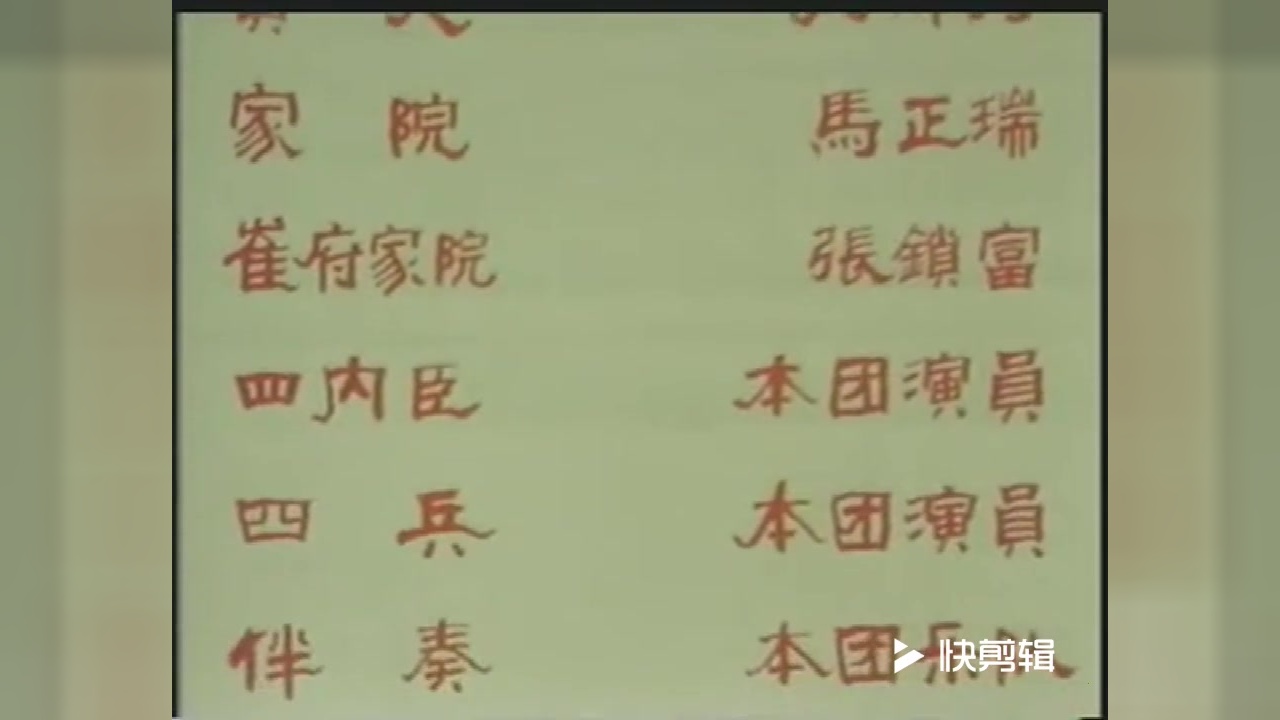 家院 馬正瑞
崔府家院 張鎖富
四内臣 本团演員
四兵 本团演員
伴奏 本团乐队
快剪辑